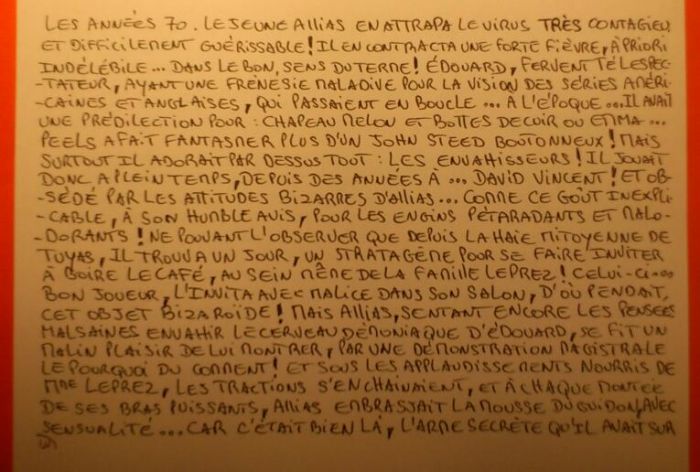 LES ANNÉES 70. LE JEUNE ALLIAS EN ATTRAPA LE VIRUS TRÈS CONTAGIEUX
ET DIFFICILEMENT GUÉRISSABLE! IL EN CONTRACTA UNE FORTE FIÈVRE, À PRIORI
INDÉLÉBILE... DANS LE BON SENS DU TERME! ÉDOUARD, FERVENT TÉLESPEC-
-TATEUR, AYANT UNE FRÉNÉSIE MALADIVE POUR LA VISION DES SÉRIES AMÉRI-
-CAINES ET ANGLAISES, QUI PASSAIENT EN BOUCLE... A L'ÉPOQUE... IL AVAIT
UNE PRÉDILECTION POUR : CHAPEAU MELON ET BOTTES DE CUIR OU EMMA...
PEELS A FAIT FANTASMER PLUS D'UN JOHN STEED BOUTONNEUX! MAIS
SURTOUT IL ADORAIT PAR DESSUS TOUT : LES ENVAHISSEURS! IL JOUAIT
DONC A PLEIN TEMPS, DEPUIS DES ANNÉES À... DAVID VINCENT! ET OB-
-SÉDÉ PAR LES ATTITUDES BIZARRES D'ALLIAS... COMME CE GOÛT INEXPLI-
-CABLE, À SON HUMBLE AVIS, POUR LES ENGINS PÉTARADANTS ET MALO-
-DORANTS! NE POUVANT L'OBSERVER QUE DEPUIS LA HAIE MITOYENNE DE
TUYAS, IL TROUVA UN JOUR, UN STRATAGÈME POUR SE FAIRE INVITER
À BOIRE LE CAFÉ, AU SEIN MÊME DE LA FAMILLE LEPREZ! CELUI-CI...
BON JOUEUR, L'INVITA AVEC MALICE DANS SON SALON, D'OÙ PENDAIT,
CET OBJET BIZAROÏDE! MAIS ALLIAS, SENTANT ENCORE LES PENSÉES
MALSAINES ENVAHIR LE CERVEAU DÉMONIAQUE D'ÉDOUARD, SE FIT UN
MALIN PLAISIR DE LUI MONTRER, PAR UNE DÉMONSTRATION MAGISTRALE
LE POURQUOI DU COMMENT! ET SOUS LES APPLAUDISSEMENTS NOURRIS DE
MME LEPREZ, LES TRACTIONS S'ENCHAINAIENT, ET À CHAQUE MONTÉE
DE SES BRAS PUISSANTS, ALLIAS EMBRASSAIT LA MOUSSE DU GUIDON, AVEC
SENSUALITÉ... CAR C'ÉTAIT BIEN LÀ, L'ARME SECRÈTE QU'IL AVAIT SUR